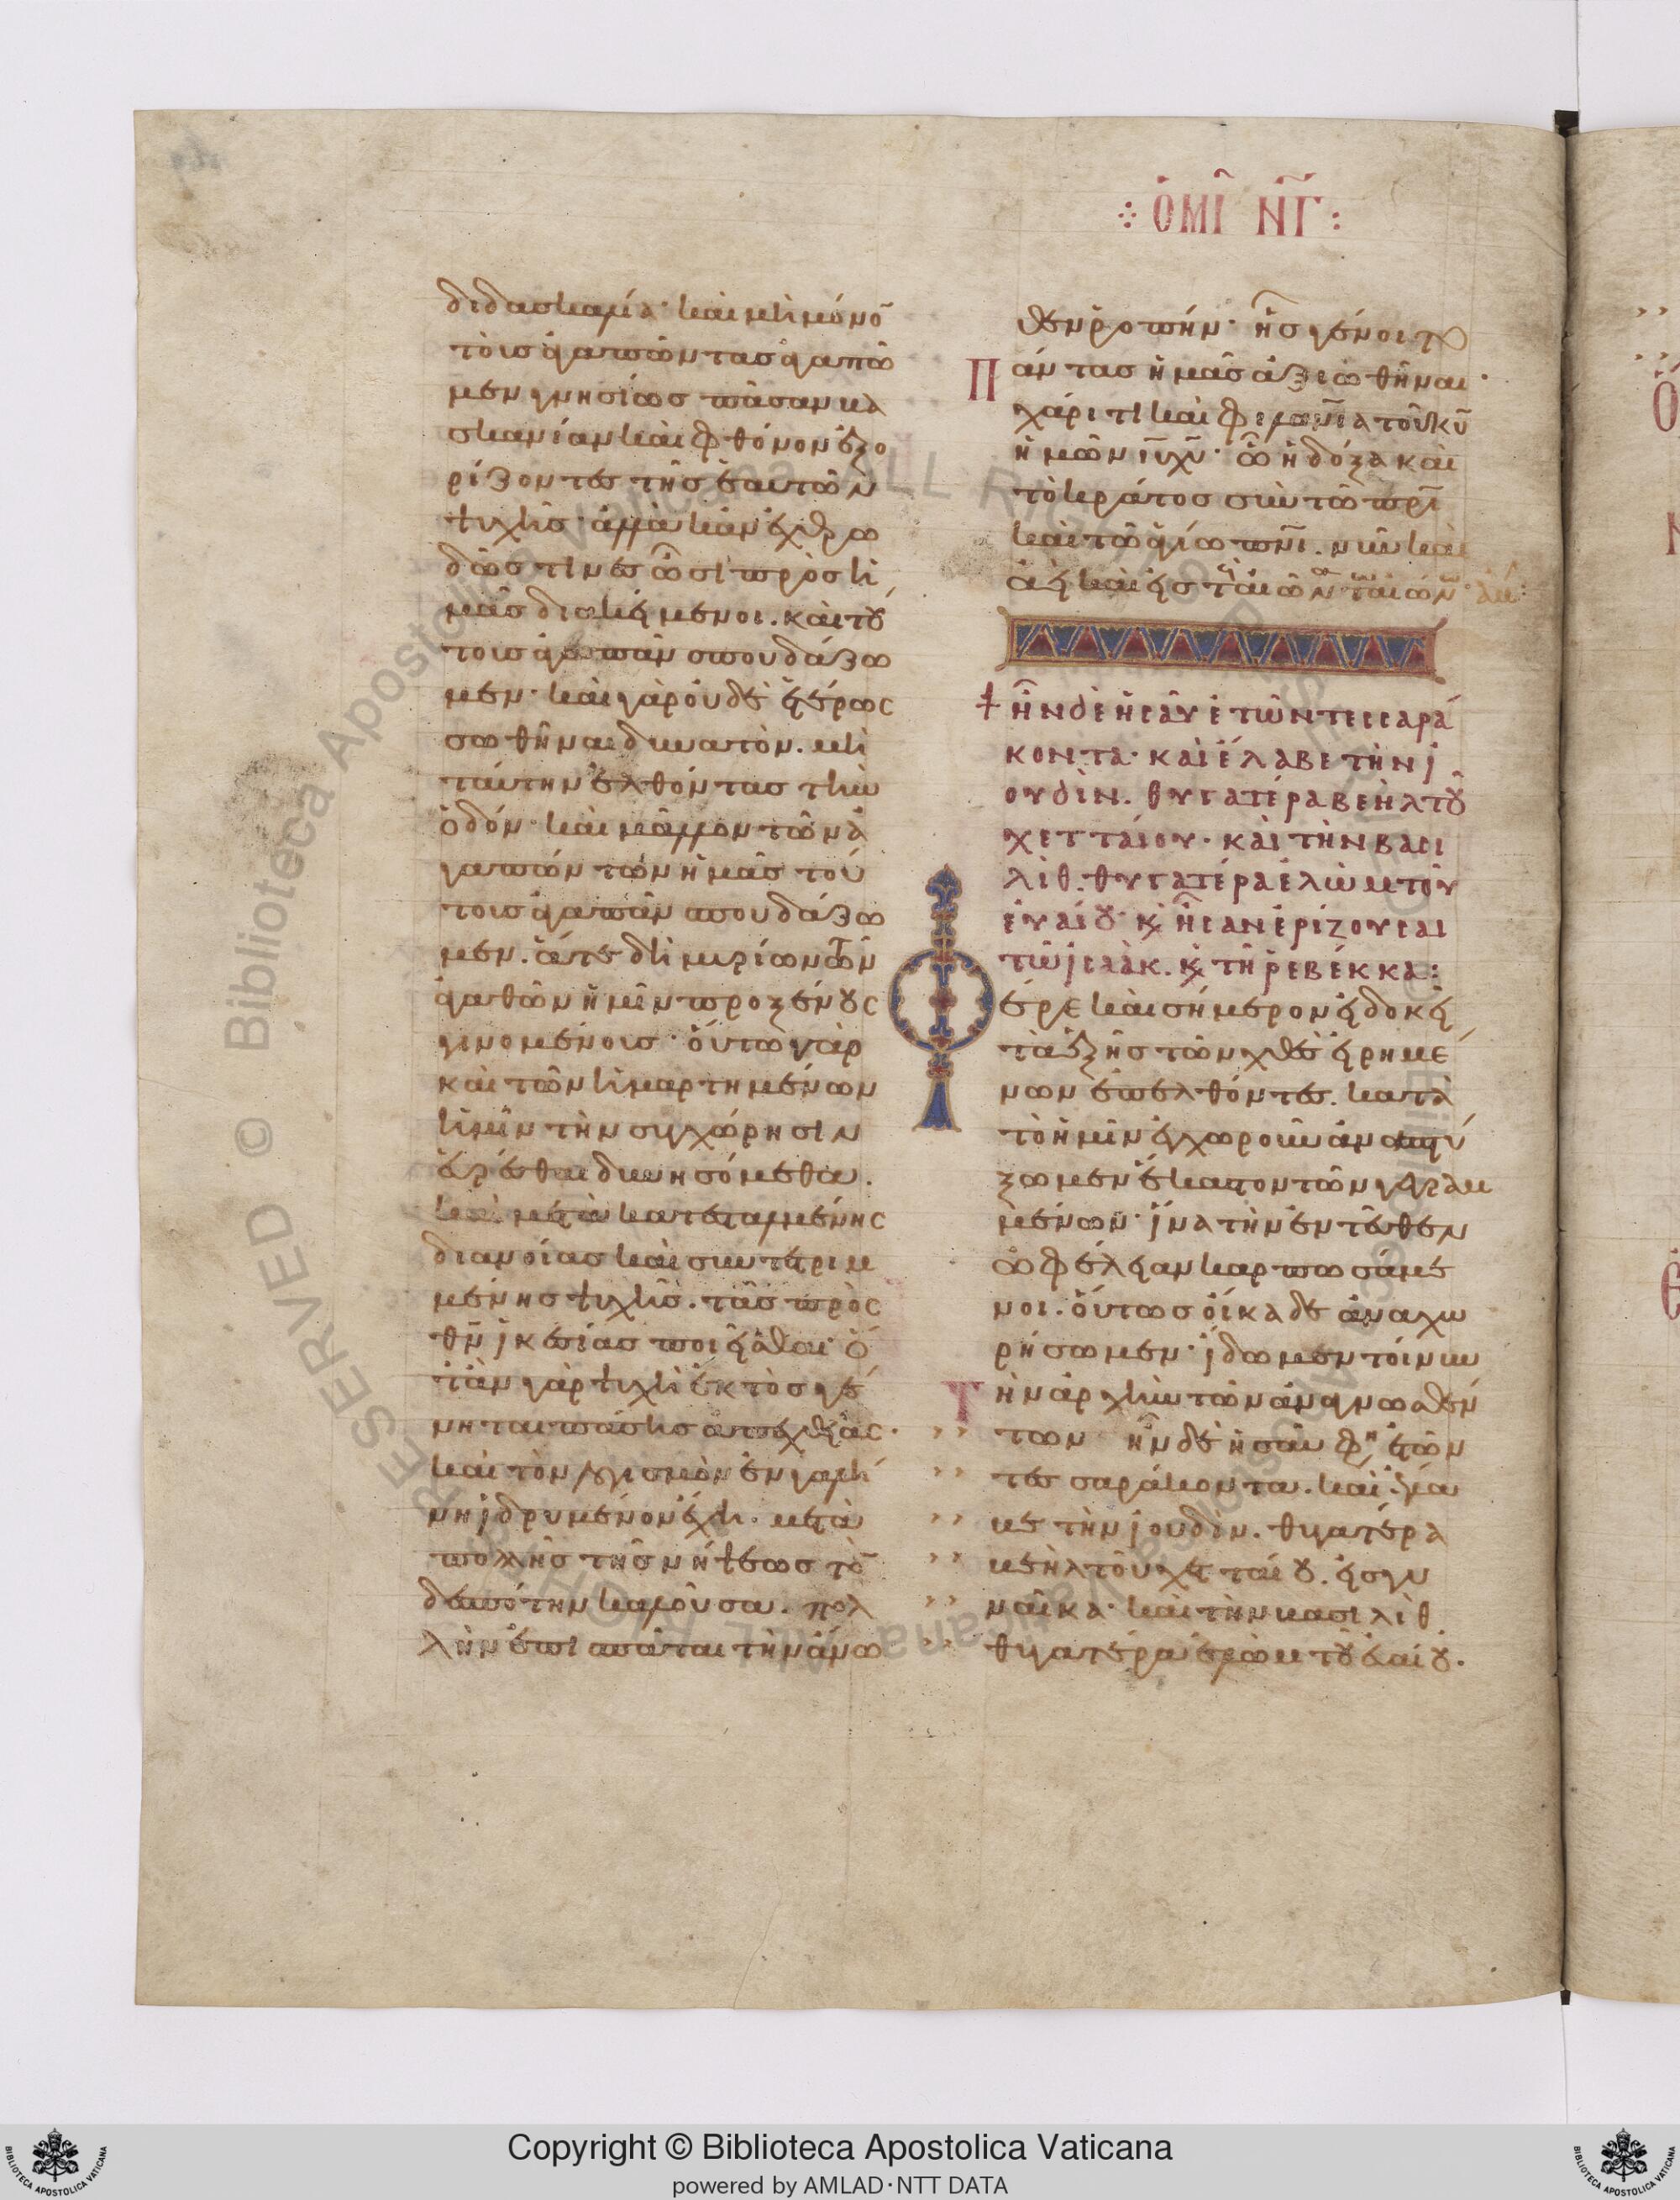 διδασκαλία· καὶ μὴ μόνο̄
τοὺσ ἀγαπῶντασ ἀγαπῶ
μεν γνησίωσ πᾶσαν βα
σκανίαν καὶ φθόνον ἐξο
ρίζοντεσ τῆσ ἑαυτῶν
ψυχῆσ· ἀλλὰ κἂν ἐχθρω
δῶσ τινὲσ ὦσι πρὸσ ἡ
μᾶσ διακείμενοι. καὶ τού
τουσ ἀγαπᾶν σπουδάζω
μεν· καὶ γὰρ οὐδὲ ἑτέρωσ
σωθῆναι δυνατὸν. μὴ
ταύτην ἐλθόντασ τὴν
ὁδόν· καὶ μᾶλλον τῶν ἀ
γαπώντων ἡμᾶσ τού
τουσ ἀγαπᾶν σπουδάζω
μεν. ἅτε δὴ μυρίων τῶν
ἀγαθῶν ἡμῖν προξένουσ
γινομένουσ· οὕτω γὰρ
καὶ τῶν ἡμαρτημένων
ἡμῖν τὴν συγχώρησιν
εὑρέσθαι δυνησόμεθα.
καὶ μετὰ κατεσταλμένησ
διανοίασ καὶ συντετριμ
μένησ ψυχῆσ. τὰσ πρὸσ
θν̄ ἱκεσίασ ποιεῖσθαι· ὅ
τἂν γὰρ ψυχὴ ἐκτὸσ γέ
νηται πάσησ ἀπεχθείασ·
καὶ τὸν λογισμὸν ἐν γαλή
νη ἱδρυμένον ἔχη. μετὰ
πολλῆσ τῆσ νήψεωσ τὸ̄
δεσπότην καλοῦσα. πολ
λὴν ἐπισπᾶται τὴν ἄνω
:· ὉΜΙ ΝΓ :
θεν ῥοπήν· ἧσ γένοιτο
πάντασ ἡμᾶσ ἀξιωθῆναι·
χάριτι καὶ φιλανῑα τοῦ κῡ
ἡμῶν ῑῡ χ̄ῡ· ὧ ἡ δόξα καὶ
τὸ κράτοσ σὺν τῶ π̄ρῑ
καὶ τῶ ἁγίω π̄νῑ. νῦν καὶ
ἀεὶ καὶ εἰσ τοὺσ αἰῶνασ τῶν αἰώνων· ἀμ:
+ ἦν δὲ ἡσαῦ ἐτῶν τεσσαρά
κοντα· καὶ ἔλαβε τὴν ἰ
ουδὶν. θυγατέρα βεὴλ τοῦ
χετταίου· καὶ τὴν βασι
λίθ. θυγατέρα ἐλὼμ τοῦ
εὐαίου· κ ἦσαν ἐρίζουσαι
τῶ ἰσαὰκ. κ τῆ ῥεβέκκα:
Φέρε καὶ σήμερον εἰ δοκεῖ
τὰ ἑξῆσ τῶν χθὲσ εἰρημέ
νων ἐπελθόντεσ. κατὰ
τὸ ἡμῖν ἐγχωροῦν ἀναπτύ
ξωμεν ἕκαστον τῶν γεγραμ
μένων· ἵνα τὴν ἐντεῦθεν
ὠφέλειαν καρπωσάμε
νοι. οὕτωσ οἴκαδε ἀναχω
ρήσωμεν· ἴδωμεν τοίνυν
τὴν ἀρχὴν τῶν ἀναγνωσθέν
των ἦν δὲ ἡσαῦ φη ἐτῶν
τεσσαράκοντα. καὶ ἔλα
βε τὴν ἰουδὶν. θυγατέρα
βεὴλ τοῦ χετταίου. εἰσ γυ
ναῖκα· καὶ τὴν βασιλὶθ
θυγατέρα ἐλὼμ τοῦ εὐαίου.
Copyright © Biblioteca Apostolica Vaticana
powered by AMLAD·NTT DATA